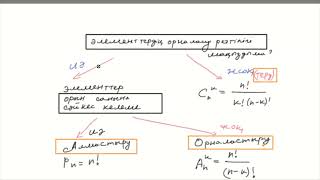 элементтердің орналасу реттілігі
маңызды ма?
иә
жоқ
(теру)
элементтер
орын санына
сәйкес келеме
C_n^k = n! / k!(n-k)!
иә
жоқ
Алмастыру
Орналастыру
P_n = n!
A_n^k = n! / (n-k)!